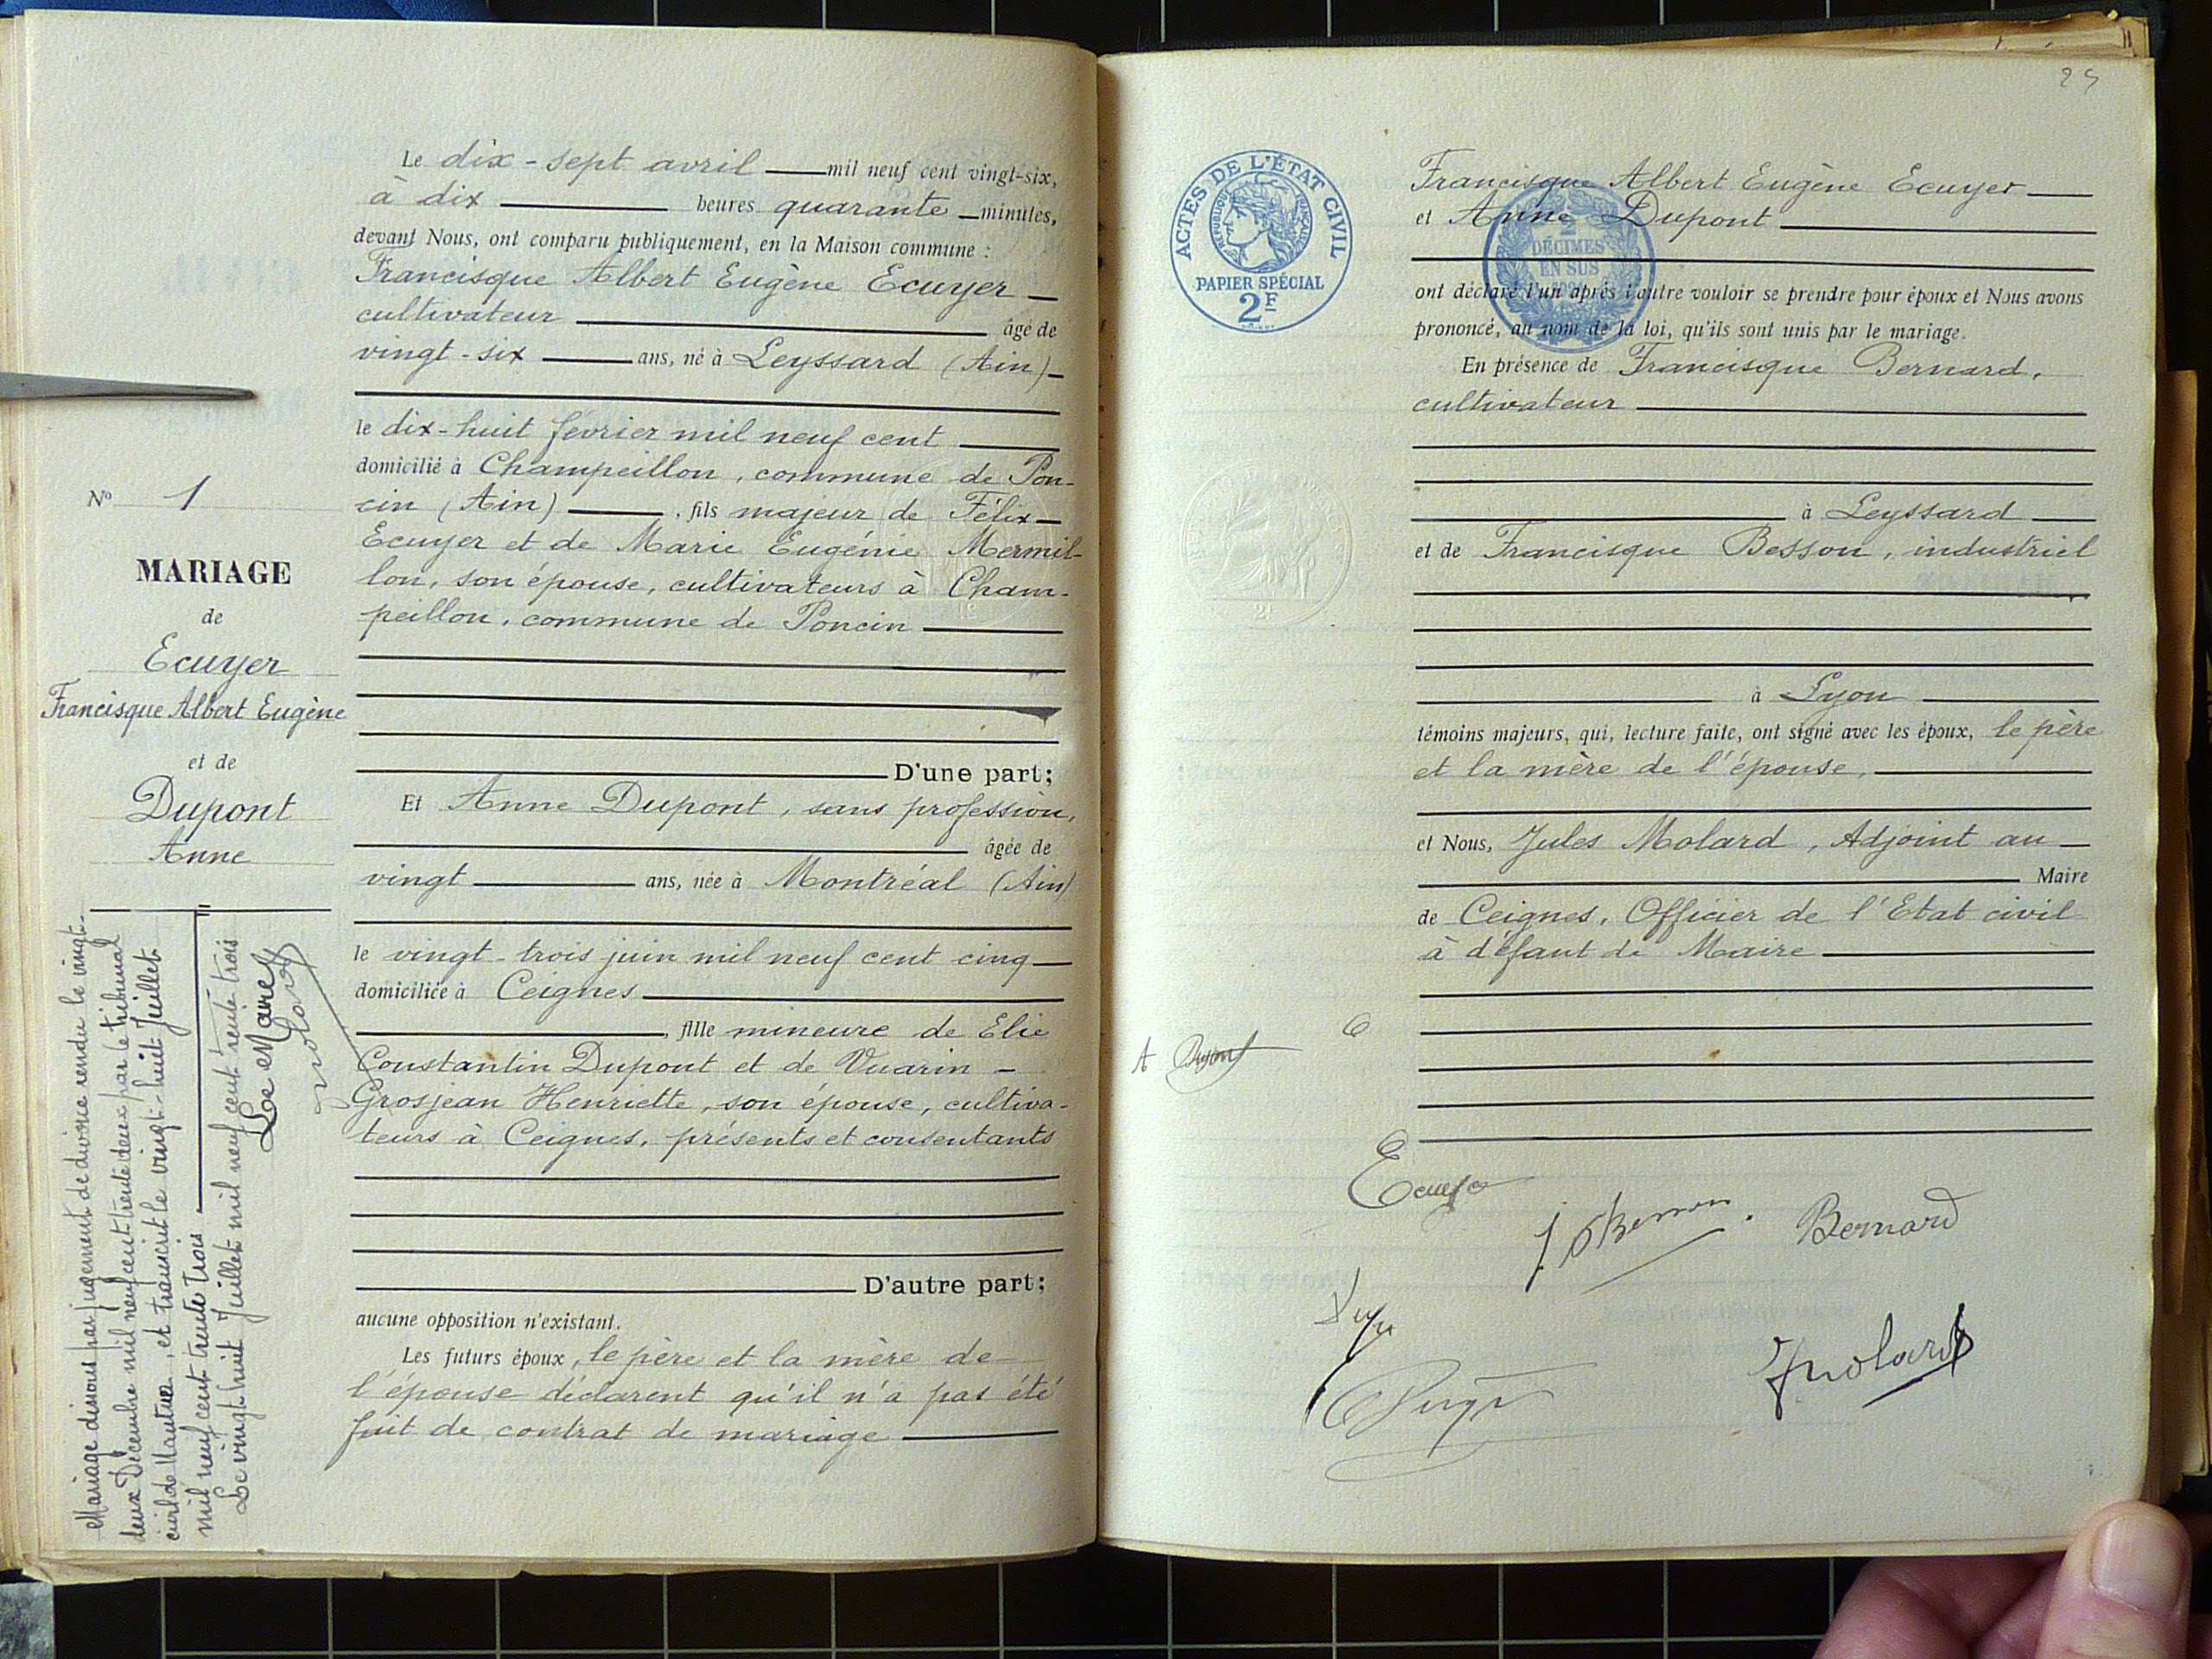 Le dix-sept avril mil neuf cent vingt-six,
à dix heures quarante minutes,
devant Nous, ont comparu publiquement, en la Maison commune :
Francisque Albert Eugène Ecuyer
cultivateur âgé de
vingt-six ans, né à Leyssard (Ain)
le dix-huit février mil neuf cent
domicilié à Champeillon, commune de Pon-
cin (Ain), fils majeur de Félix
Ecuyer et de Marie Eugénie Mermil-
lon, son épouse, cultivateurs à Cham-
peillon, commune de Poncin
D'une part;
Et Anne Dupont, sans profession,
âgée de
vingt ans, née à Montréal (Ain)
le vingt-trois juin mil neuf cent cinq
domiciliée à Ceignes
, fille mineure de Elie
Constantin Dupont et de Vuarin-
Grosjean Henriette, son épouse, cultiva-
teurs à Ceignes, présents et consentants
D'autre part;
aucune opposition n'existant.
Les futurs époux, le père et la mère de
l'épouse déclarent qu'il n'a pas été
fait de contrat de mariage
No 1
MARIAGE
de
Ecuyer
Francisque Albert Eugène
et de
Dupont
Anne
Mariage dissous par jugement de divorce rendu le vingt-
deux Décembre mil neuf cent trente deux par le tribunal
civil de Nantua, et transcrit le vingt-huit Juillet
mil neuf cent trente trois
Le vingt huit Juillet mil neuf cent trente trois
Le Maire
Molard
ACTES DE L'ÉTAT CIVIL
RÉPUBLIQUE FRANÇAISE
PAPIER SPÉCIAL
2F
2
DÉCIMES
EN SUS
Francisque Albert Eugène Ecuyer
et Anne Dupont
ont déclaré l'un après l'autre vouloir se prendre pour époux et Nous avons
prononcé, au nom de la loi, qu'ils sont unis par le mariage.
En présence de Francisque Bernard,
cultivateur
à Leyssard
et de Francisque Besson, industriel
à Lyon
témoins majeurs, qui, lecture faite, ont signé avec les époux, le père
et la mère de l'épouse,
et Nous, Jules Molard, Adjoint au
Maire
de Ceignes, Officier de l'Etat civil
à défaut de Maire
A Dupont
Ecuyer
Bernard
Molard